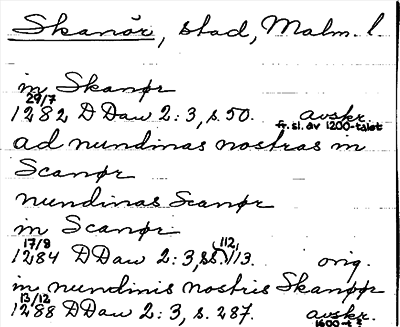 Skanör, stad, Malm. l.
in Skanør
29/7
1282 DDan 2:3, s. 50. avskr.
fr. sl. av 1200-talet
ad nundinas nostras in
Scanør
nundinas Scanør
in Scanør
17/8 112,
1284 DDan 2:3, ss. 113. orig.
in nundinis nostris Skanøør
13/12
1288 DDan 2:3, s. 287. avskr.
1600-t